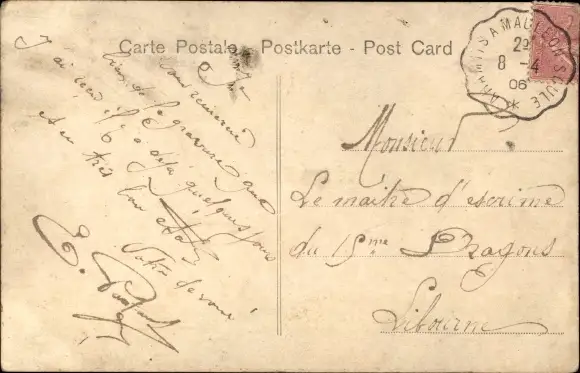 Carte Postale - Postkarte - Post Card
MAULÉON-SOULE
2e
8 - 4
06
Je
vous remercie
bien de la gravure que
J'ai reçu il y a déjà quelques jours
et en très bon état
Votre dévoué
E.
Monsieur
Le maître d'escrime
du 15me Dragons
Libourne